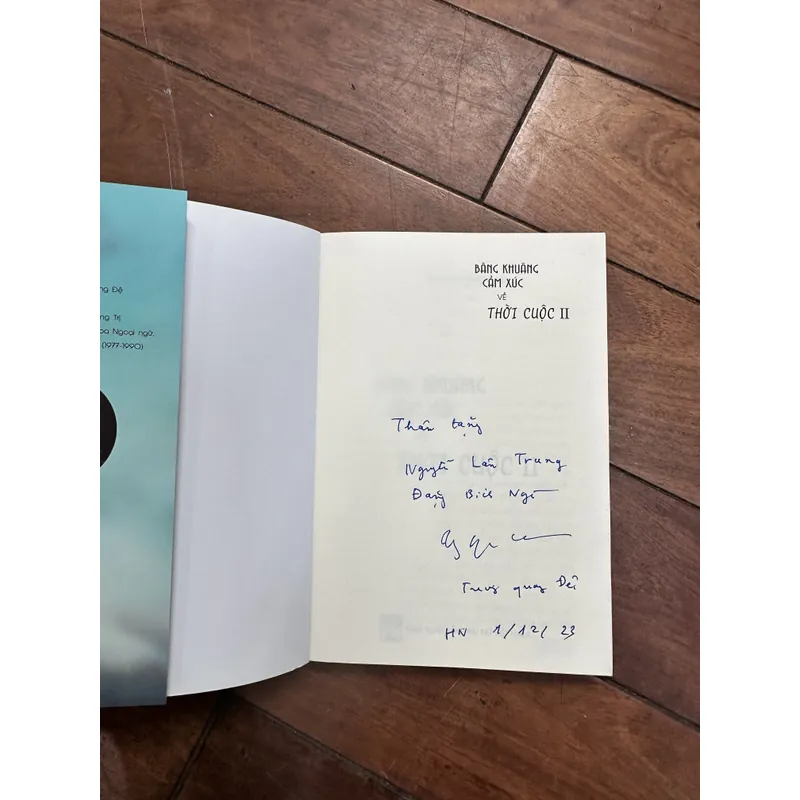 ng Đệ
ng Trị
oa Ngoại ngữ,
(1977-1990)
BÂNG KHUÂNG
CẢM XÚC
VỀ
THỜI CUỘC II
Thân tặng
Nguyễn Lân Trung
Đặng Bích Ngà
Trương Quang Đệ
HN 1/12/23